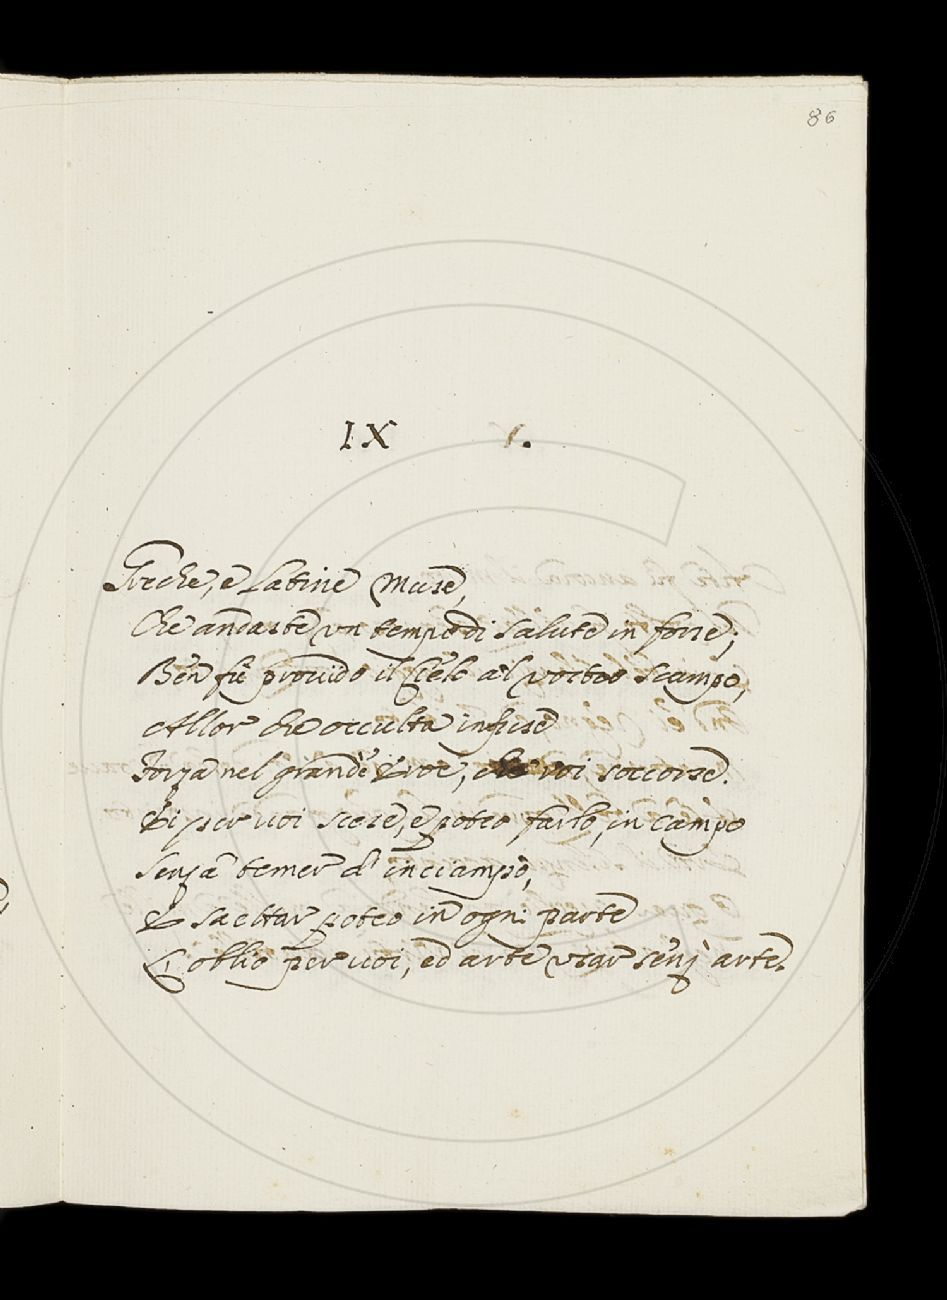 86
IX .
Greche, e Latine Muse,
Che andaste vn tempo di salute in forse;
Ben fù prouido il Cielo al vostro scampo,
Allor che occulta infuse
Forza nel grande Eroe, che voi soccorse.
Ei per uoi scese, e poteo farlo, in campo
Senza temer d' inciampo,
E saettar poteo in ogni parte
L' oblio per uoi, ed arte vsar senz' arte.